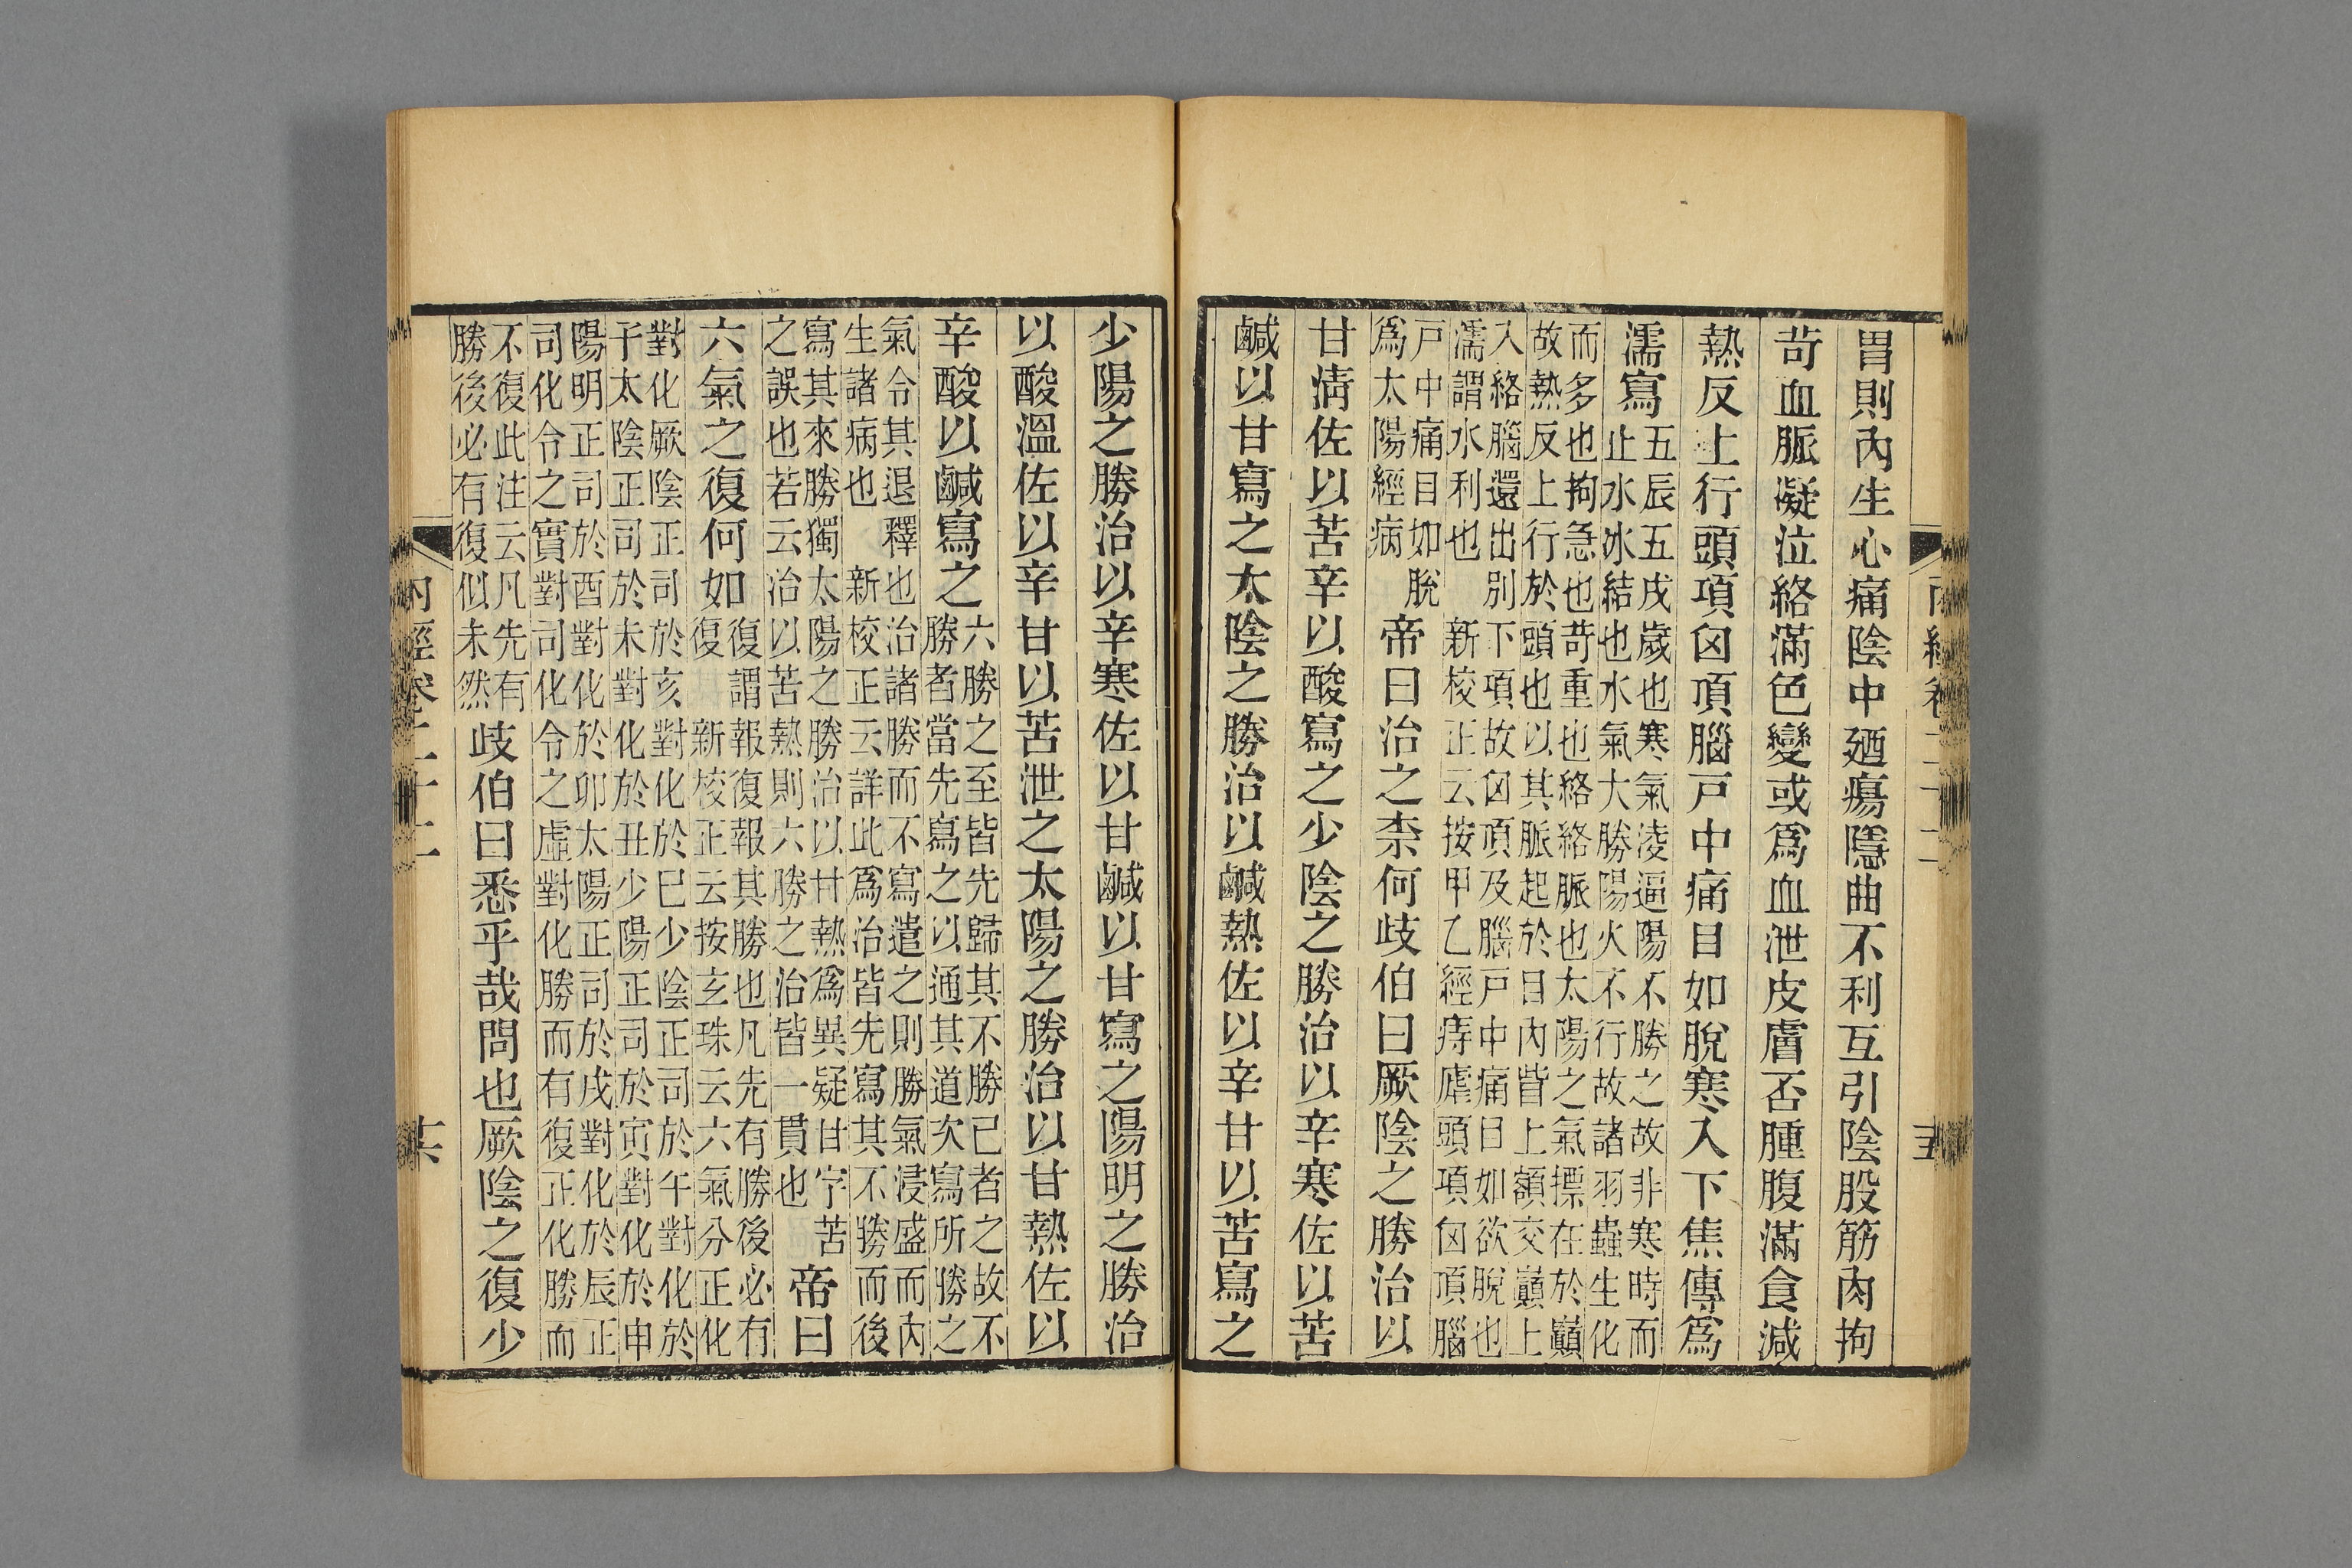 胃則內生心痛陰中廼瘍隱曲不利互引陰股筋肉拘
苛血脈凝泣絡滿色變或爲血泄皮膚否腫腹滿食減
熱反上行頭項囟頂腦戸中痛目如脫寒入下焦傳爲
濡寫
五辰五戌歲也寒氣淩逼陽不勝之故非寒時而
止水冰結也水氣大勝陽火不行故諸羽蟲生化
而多也拘急也苛重也絡絡脈也太陽之氣摽在於巔
故熱反上行於頭也以其脈起於目內眥上額交巔上
入絡腦還出別下項故囟頂及腦戸中痛目如欲脫也
濡謂水利也 新校正云按甲乙經痔瘧頭項囟頂腦
戸中痛目如脫
爲太陽經病
帝曰治之柰何歧伯曰厥陰之勝治以
甘淸佐以苦辛以酸寫之少陰之勝治以辛寒佐以苦
鹹以甘寫之太陰之勝治以鹹熱佐以辛甘以苦寫之
少陽之勝治以辛寒佐以甘鹹以甘寫之陽明之勝治
以酸溫佐以辛甘以苦泄之太陽之勝治以甘熱佐以
辛酸以鹹寫之
六勝之至皆先歸其不勝己者之故不
勝者當先寫之以通其道次寫所勝之
氣令其退釋也治諸勝而不寫遣之則勝氣浸盛而內
生諸病也 新校正云詳此爲治皆先寫其不勝而後
寫其來勝獨太陽之勝治以甘熱爲異疑甘字苦
之誤也若云治以苦熱則六勝之治皆一貫也
帝曰
六氣之復何如
復謂報復報其勝也凡先有勝後必有
復 新校正云按玄珠云六氣分正化
對化厥陰正司於亥對化於巳少陰正司於午對化於
子太陰正司於未對化於丑少陽正司於寅對化於申
陽明正司於酉對化於卯太陽正司於戌對化於辰正
司化令之實對司化令之虛對化勝而有復正化勝而
不復此注云凡先有
勝後必有復似未然
歧伯曰悉乎哉問也厥陰之復少
內經卷二十二